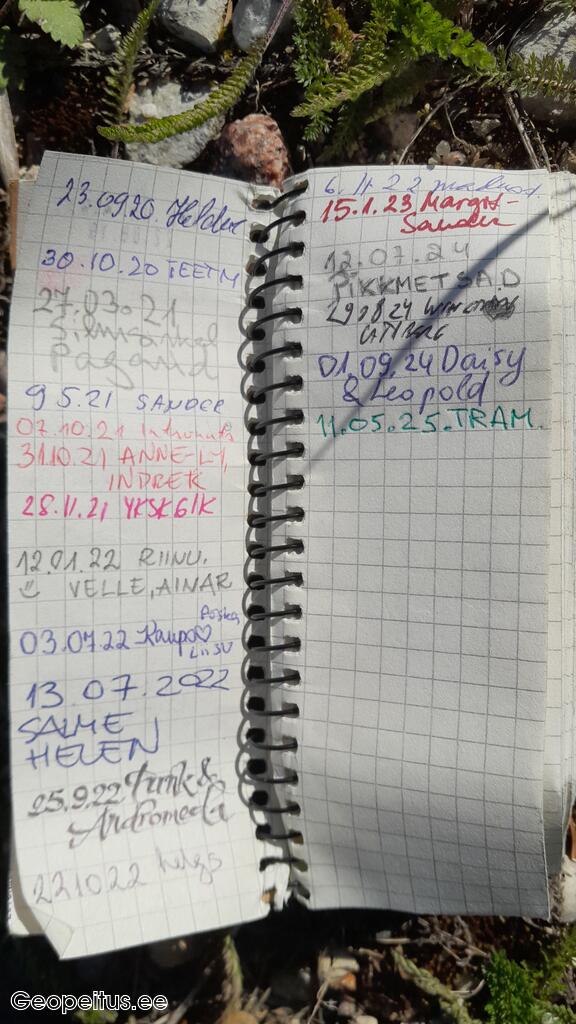 23.09.20 Helder
30.10.20 TEETM
27.03.21
9 5.21 SANDER
07.10.21
31.10.21 ANNE-LY,
INDREK
28.11.21 YKSK6IK
12.01.22 RIINU.
VELLE, AINAR
03.07.22 Kaupo♡
LIISU
13.07.2022
SALME
HELEN
25.9.22 Funk &
Andromeda
221022 helgs
6.11.22
15.1.23 Margit-
Sander
12.07.24
PIKKMETSA.D
290824
01.09.24 Daisy
& Leopold
11.05.25.TRAM.
Geopeitus.ee